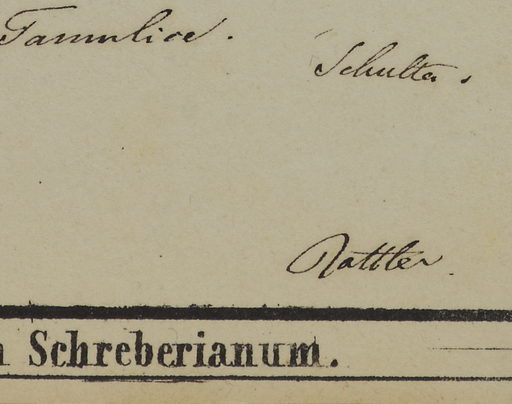 Tamulice.
Schultes.
Rottler.
n Schreberianum.